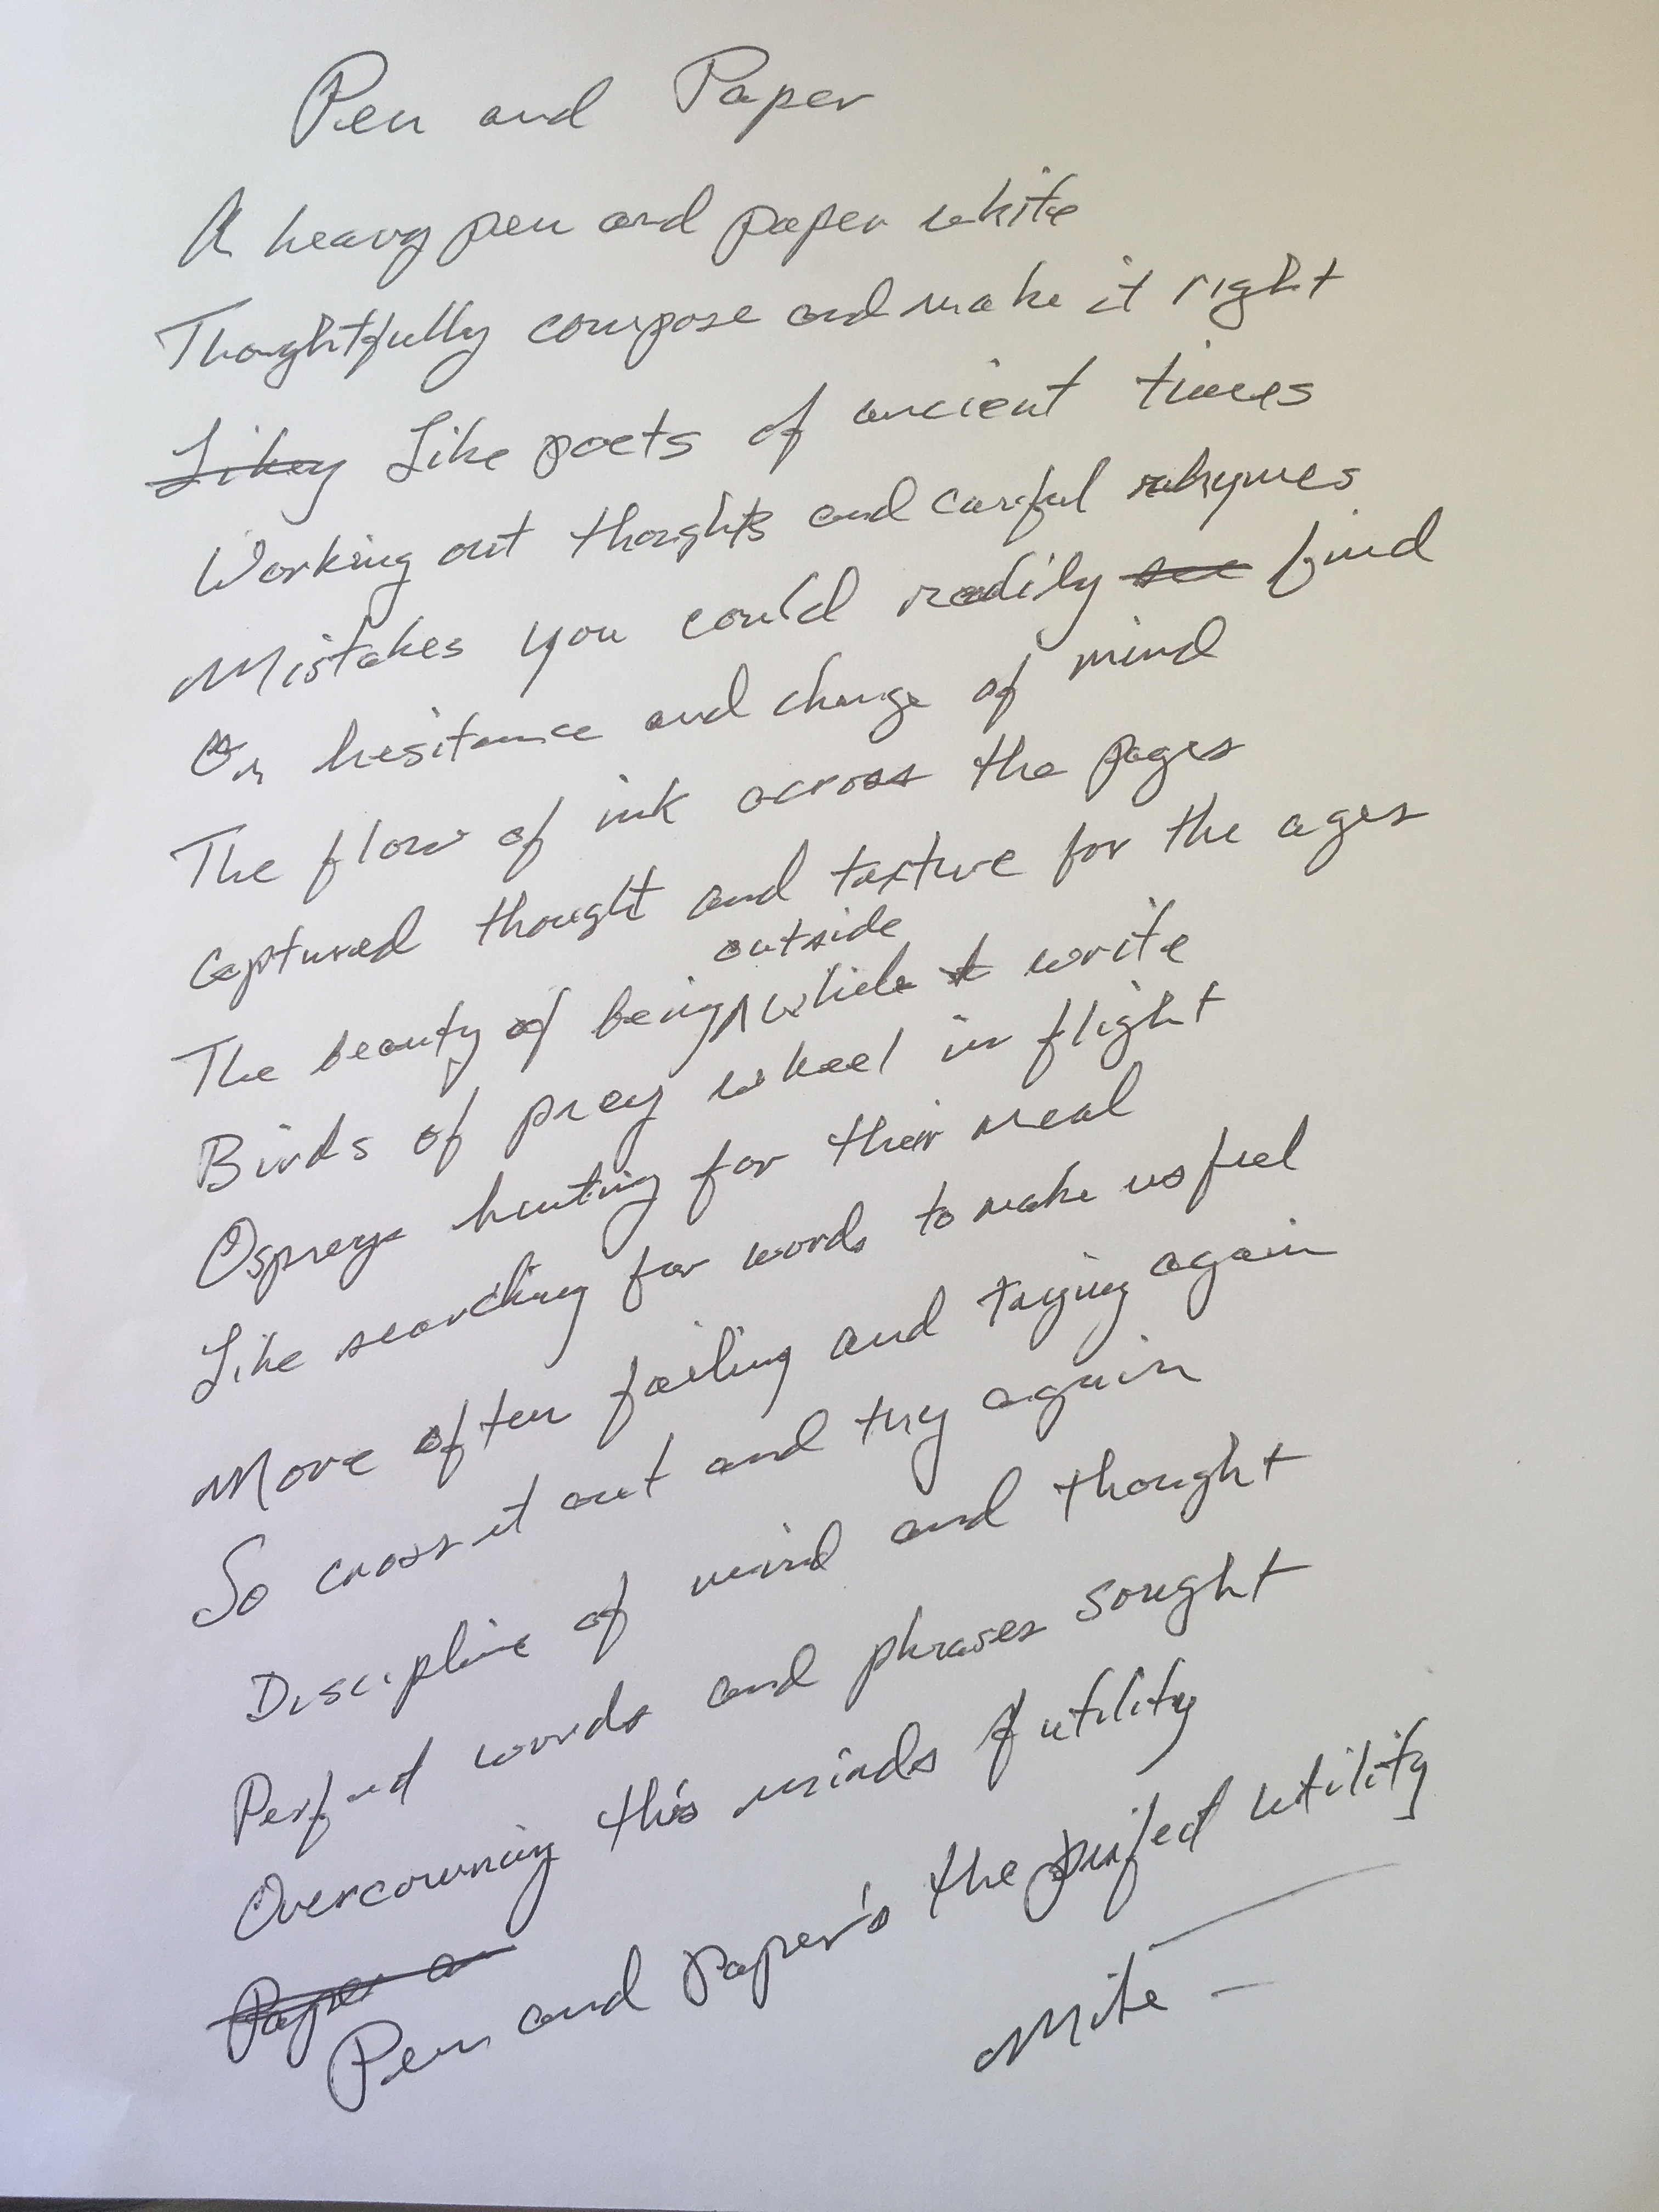 Pen and Paper
A heavy pen and paper white
Thoughtfully compose and make it right
Likey Like poets of ancient times
Working out thoughts and careful rhymes
Mistakes you could readily see find
Or hesitance and change of mind
The flow of ink across the pages
Captured thought and texture for the ages
outside
The beauty of being while I write
Birds of prey wheel in flight
Ospreys hunting for their meal
Like searching for words to make us feel
More often failing and trying again
So cross it out and try again
Discipline of mind and thought
Perfect words and phrases sought
Overcoming this minds futility
Paper a
Pen and Paper's the perfect utility
Mike